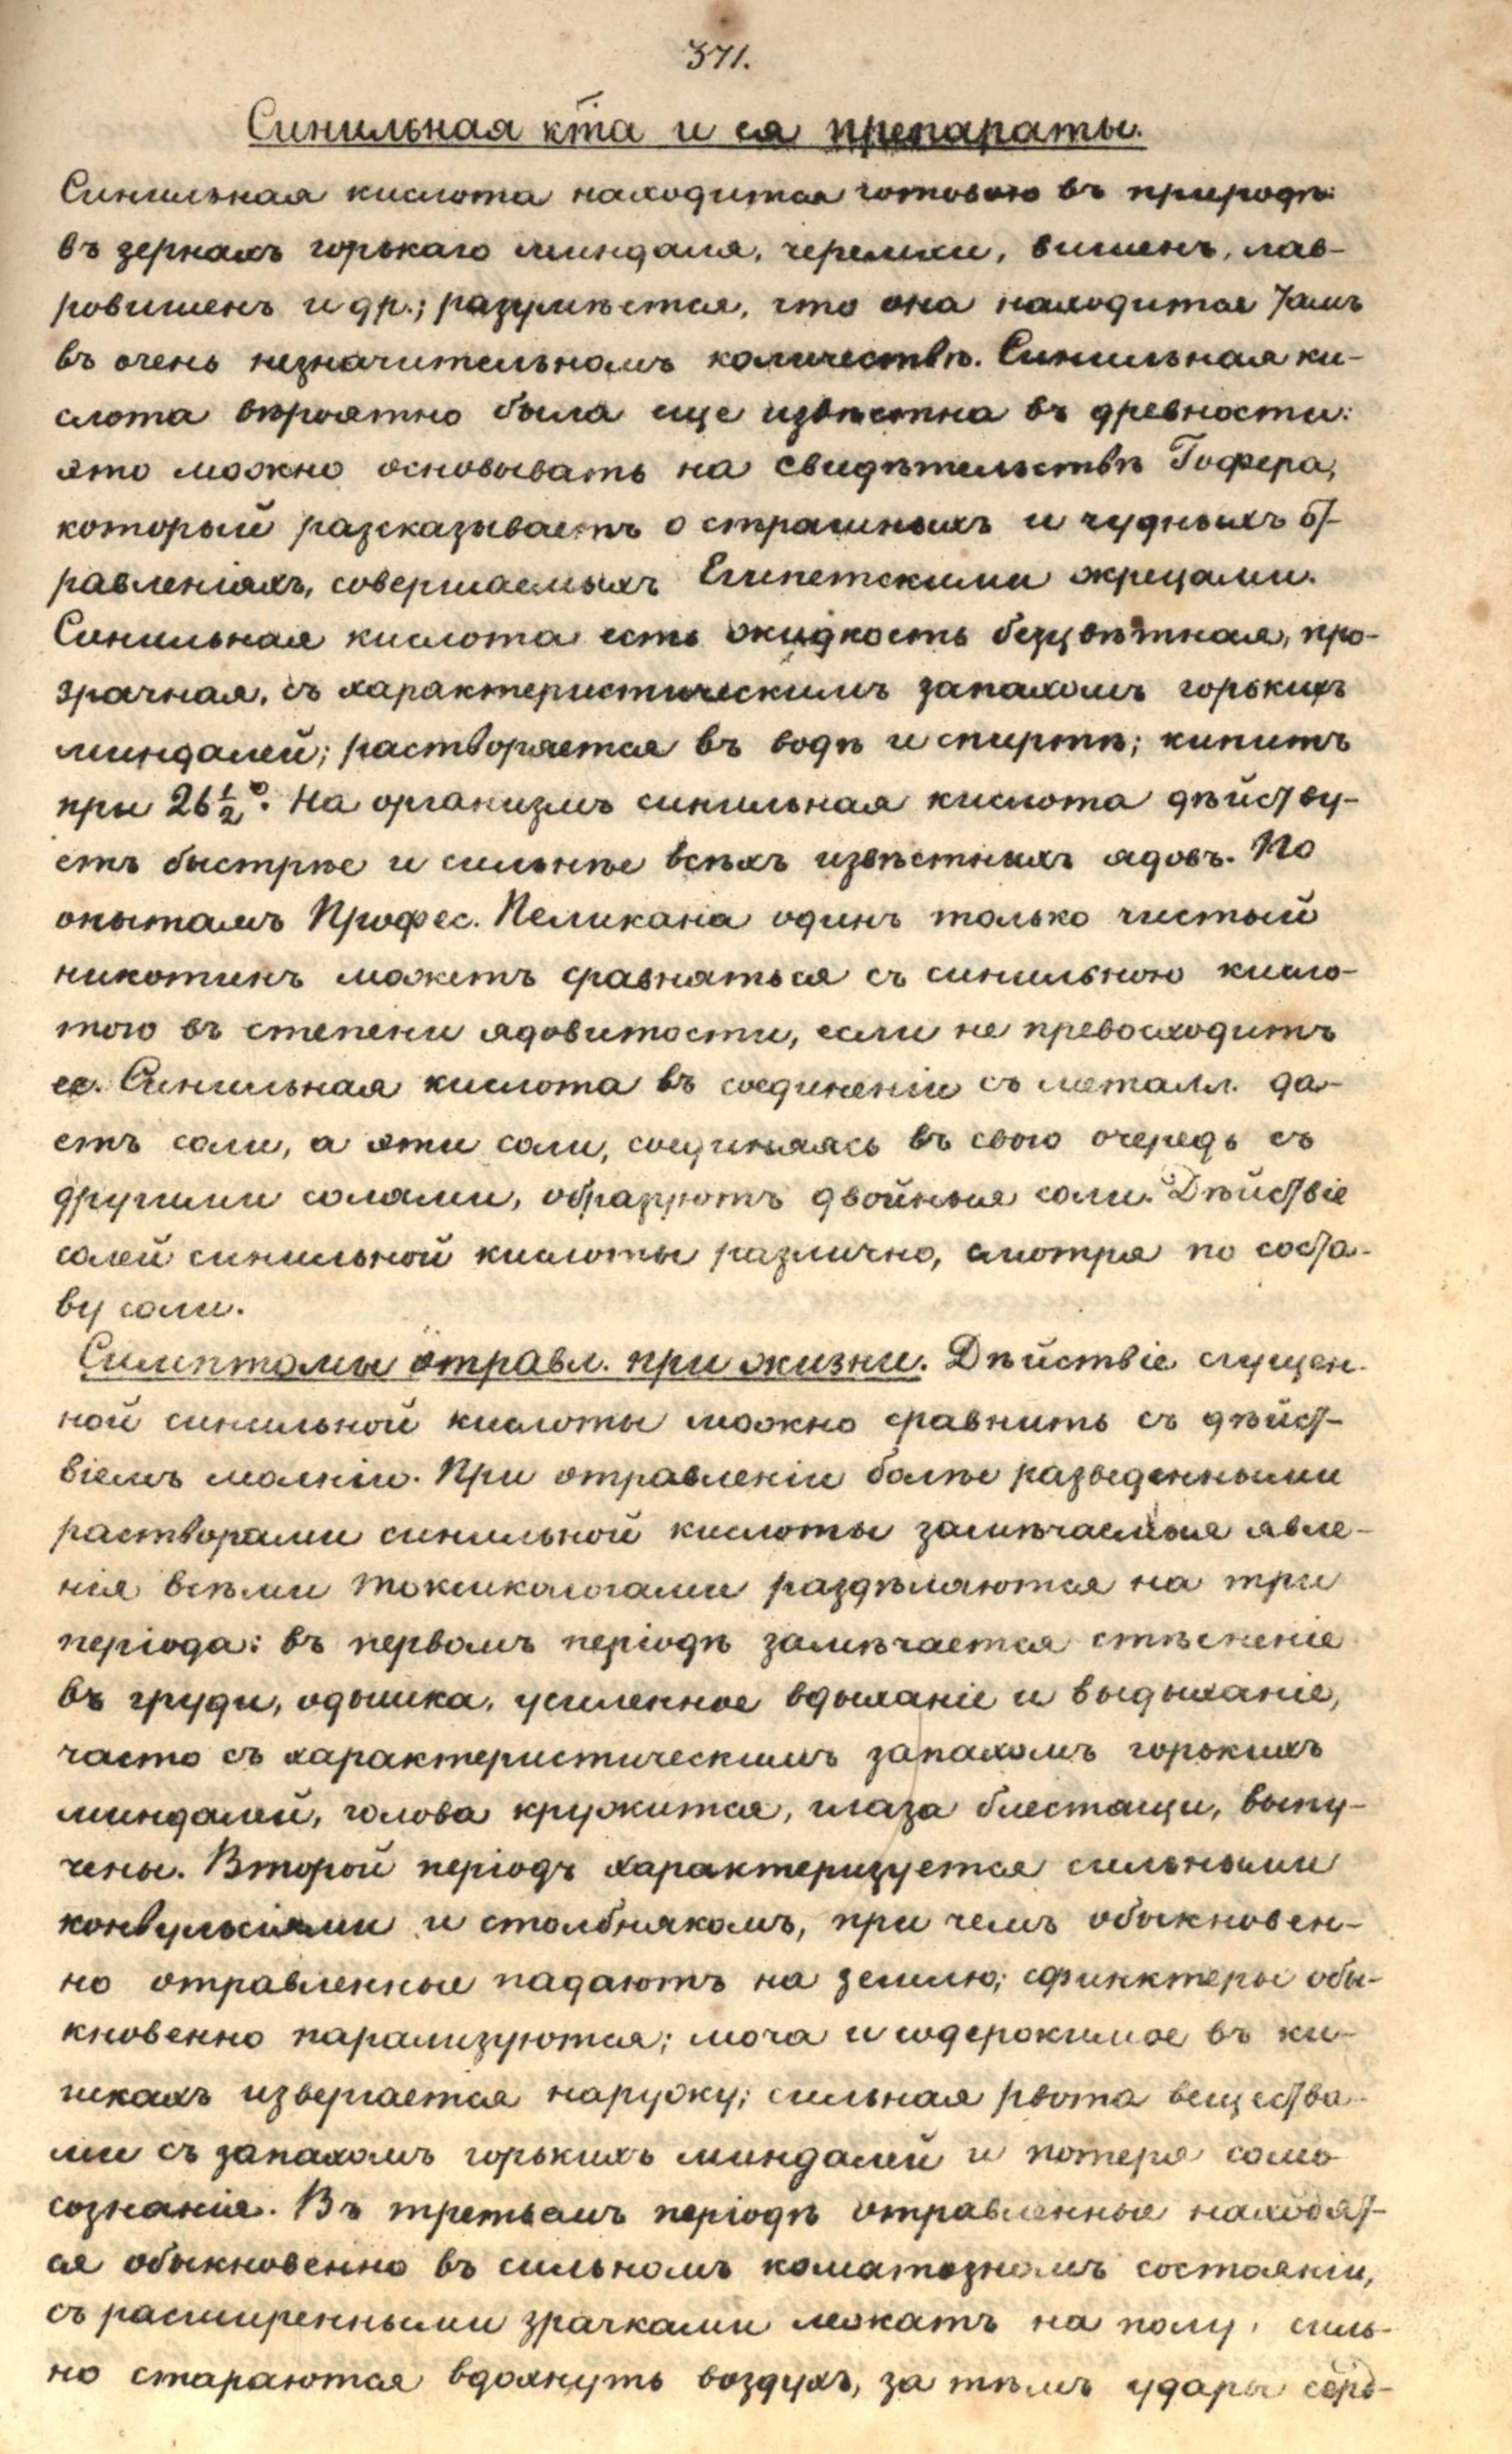 371.
Синильная к̅та и ея препараты.
Синильная кислота находится готовою въ природѣ:
въ зернахъ горькаго миндаля, черемхи, вишенъ, лав-
ровишенъ и др.; разумѣется, что она находится тамъ
въ очень незначительномъ количествѣ. Синильная ки-
слота вѣроятно была еще извѣстна въ древности:
это можно основывать на свидѣтельствѣ Гофера,
который разсказываетъ о страшныхъ и чудныхъ от-
равленіяхъ, совершаемыхъ Египетскими жрецами.
Синильная кислота есть жидкость безцвѣтная, про-
зрачная, съ характеристическимъ запахомъ горькихъ
миндалей; растворяется въ водѣ и спиртѣ; кипитъ
при 26 ½°. На организмъ синильная кислота дѣйству-
етъ быстрѣе и сильнѣе всѣхъ извѣстныхъ ядовъ. По
опытамъ Профес. Пеликана одинъ только чистый
никотинъ можетъ сравняться съ синильною кисло-
тою въ степени ядовитости, если не превосходитъ
ее. Синильная кислота въ соединеніи съ металл. да-
етъ соли, а эти соли, соединяясь въ свою очередь съ
другими солями, образуютъ двойныя соли. Дѣйствіе
солей синильной кислоты различно, смотря по соста-
ву соли.
Симптомы отравл. при жизни. Дѣйствіе сгущен-
ной синильной кислоты можно сравнить съ дѣйст-
віемъ молніи. При отравленіи болѣе разведенными
растворами синильной кислоты замѣчаемыя явле-
нія всѣми токсикологами раздѣляются на три
періода: въ первомъ періодѣ замѣчается стѣсненіе
въ груди, одышка, усиленное вдыханіе и выдыханіе,
часто съ характеристическимъ запахомъ горькихъ
миндалей, голова кружится, глаза блестящи, выпу-
чены. Второй періодъ характеризуется сильными
конвульсіями и столбнякомъ, при чемъ обыкновен-
но отравленные падаютъ на землю; сфинктеры обы-
кновенно парализуются; моча и содержимое въ ки-
шкахъ извергается наружу; сильная рвота вещества-
ми съ запахомъ горькихъ миндалей и потеря само-
сознанія. Въ третьемъ періодѣ отравленные находят-
ся обыкновенно въ сильномъ коматозномъ состояніи,
съ расширенными зрачками лежатъ на полу, силь-
но стараются вдохнуть воздухъ, за тѣмъ удары серд-